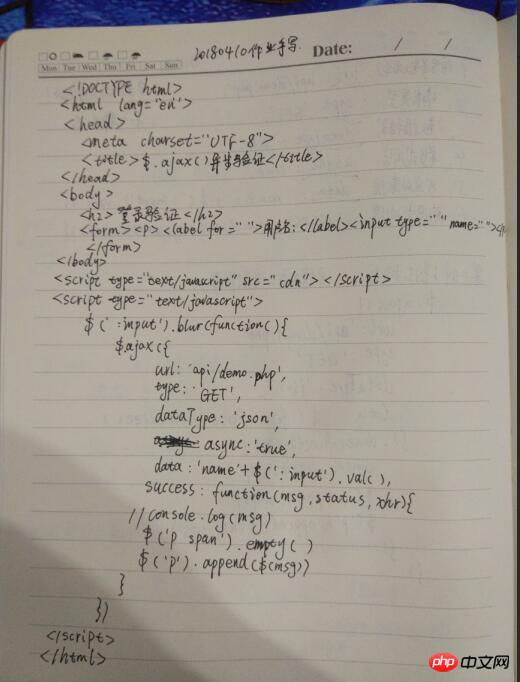 20180410作业手写.
Date: / /
Mon Tue Wed Thu Fri Sat Sun
<!DOCTYPE html>
<html lang="en">
<head>
<meta charset="UTF-8">
<title>$.ajax()异步验证</title>
</head>
<body>
<h2>登录验证</h2>
<form><p><label for=" ">用户名:</label><input type=" " name=" "></p
</form>
</body>
<script type="text/javascript" src="cdn"></script>
<script type="text/javascript">
$(':input').blur(function(){
$.ajax({
url: 'api/demo.php',
type: 'GET',
dataType: 'json',
async: 'true',
data: 'name'+$(':input').val(),
success: function(msg,status,xhr){
//console.log(msg)
$('p span').empty()
$('p').append($(msg))
}
})
</script>
</html>
php 中文网